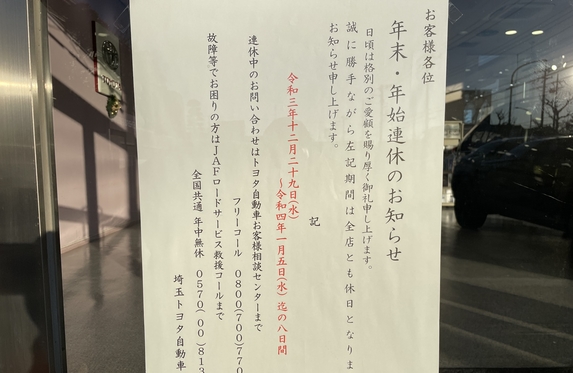 お客様各位
年末・年始連休のお知らせ
日頃は格別のご愛顧を賜り厚く御礼申し上げます。
誠に勝手ながら左記期間は全店とも休日となりま
お知らせ申し上げます。
記
令和三年十二月二十九日(水)
～令和四年一月五日(水)迄の八日間
連休中のお問い合わせはトヨタ自動車お客様相談センターまで
フリーコール 0800(700)770
故障等でお困りの方はJAFロードサービス救援コールまで
全国共通 年中無休 0570(00)813
埼玉トヨタ自動車